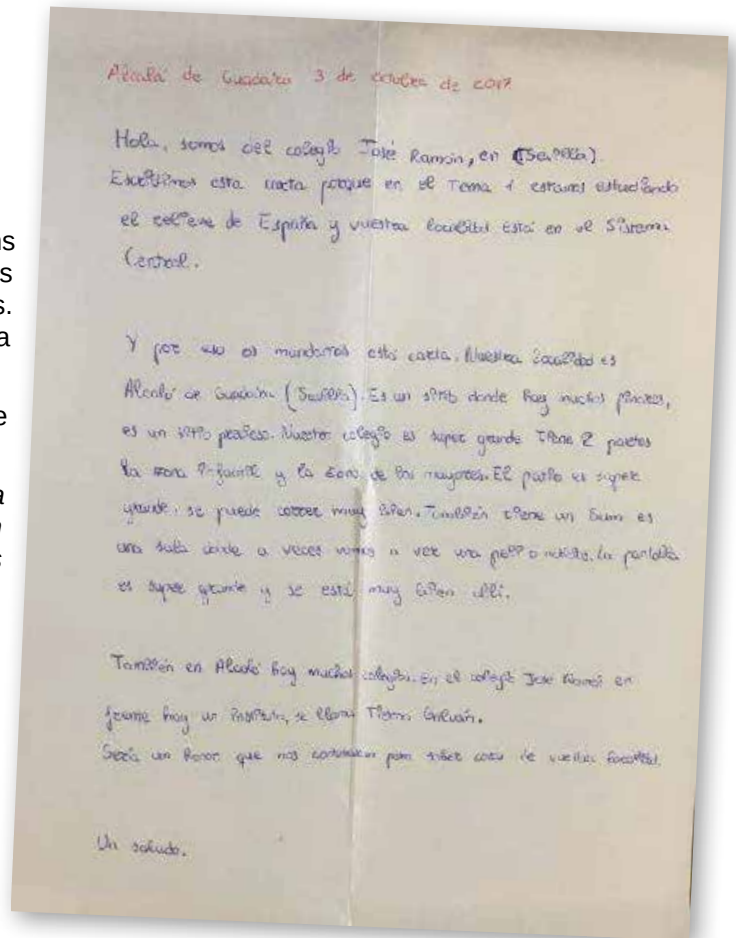 Alcalá de Guadaira 3 de octubre de 2017
Hola, somos del colegio José Ramón, en (Sevilla).
Escribimos esta carta porque en el Tema 1 estamos estudiando
el relieve de España y vuestra localidad está en el Sistema
Central.
Y por eso os mandamos esta carta. Nuestra localidad es
Alcalá de Guadaira (Sevilla). Es un sitio donde hay muchos pinares,
es un sitio precioso. Nuestro colegio es super grande tiene 2 partes
la zona infantil y la zona de los mayores. El patio es super
grande, se puede correr muy bien. También tiene un Sum es
una sala donde a veces vamos a ver una peli o . La pantalla
es super grande y se está muy bien allí.
También en Alcalá hay muchos colegios. En el colegio José Ramón en
frente hay un instituto, se llama Tierno Galván.
Sería un honor que nos contestaran para saber cosas de vuestra localidad.
Un saludo.